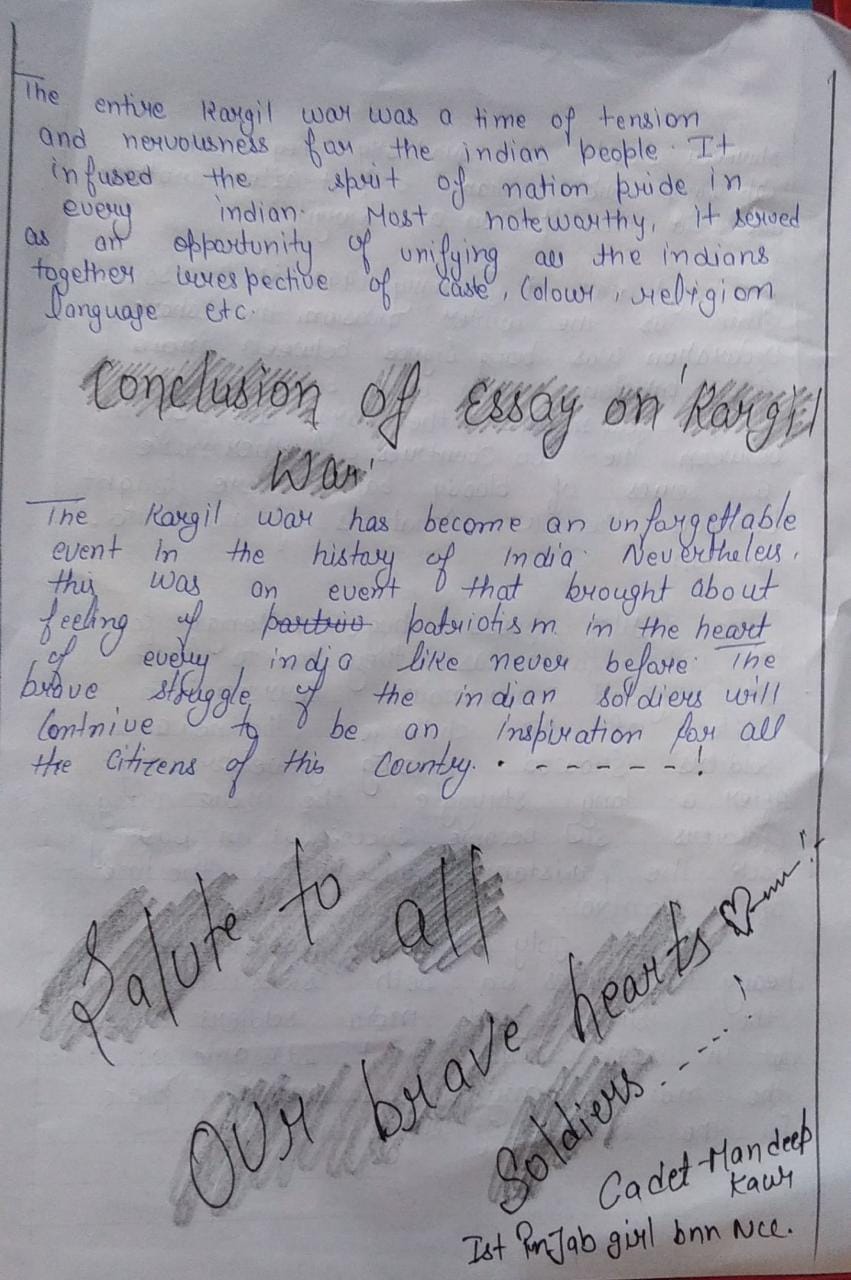 The entire Kargil war was a time of tension
and nervousness for the indian people. It
infused the sprit of nation pride in
every indian. Most noteworthy, it served
as an opportunity of unifying all the indians
together irrespective of caste, Colour, religion
language etc.
Conclusion of Essay on 'Kargil
War'
The Kargil war has become an unforgettable
event in the history of India. Nevertheless,
this was an event that brought about
feeling of patriotism in the heart
of every india like never before. The
brave struggle of the indian soldiers will
Contnive to be an inspiration for all
the Citizens of this Country. . - - - - - - !
Salute to all
Our brave hearts ♡
Soldiers ..... !
Cadet Mandeep
Kaur
Ist Punjab girl bnn Ncc.